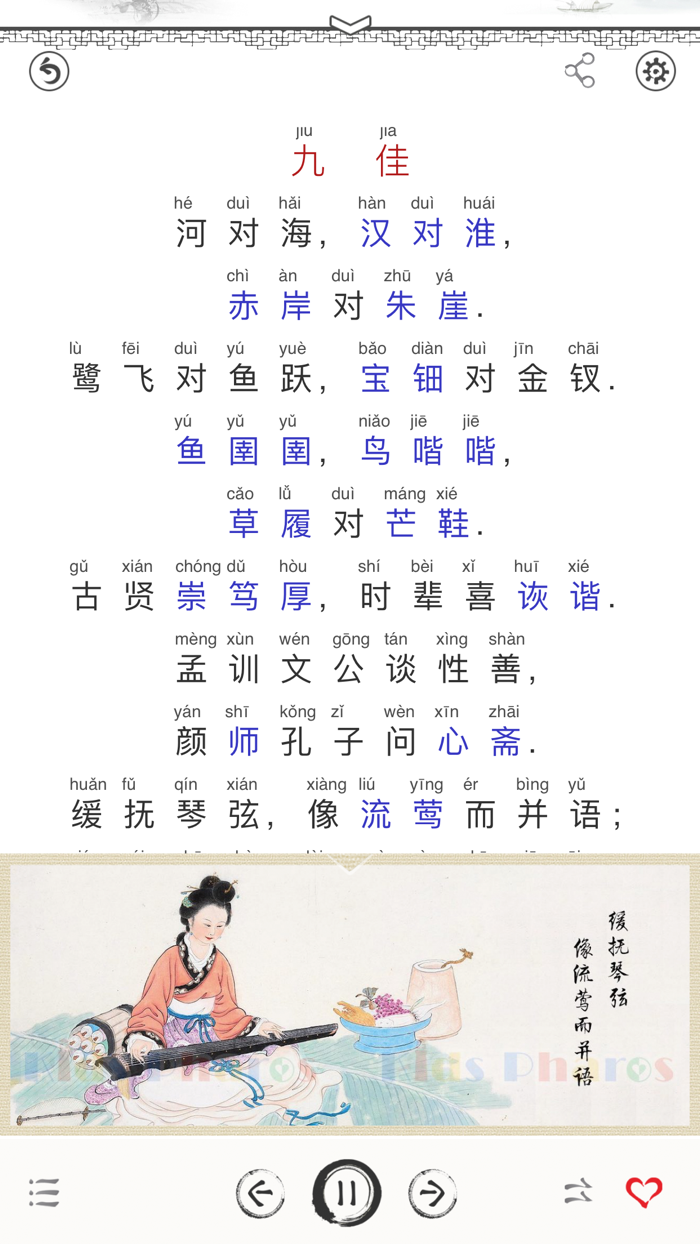 jiǔ jiā
九 佳
hé duì hǎi hàn duì huái
河对海，汉对淮，
chì àn duì zhū yá
赤岸对朱崖.
lù fēi duì yú yuè bǎo diàn duì jīn chāi
鹭飞对鱼跃，宝钿对金钗.
yú yǔ yǔ niǎo jiē jiē
鱼圉圉，鸟喈喈，
cǎo lǚ duì máng xié
草履对芒鞋.
gǔ xián chóng dǔ hòu shí bèi xǐ huī xié
古贤崇笃厚，时辈喜诙谐.
mèng xùn wén gōng tán xìng shàn
孟训文公谈性善，
yán shī kǒng zǐ wèn xīn zhāi
颜师孔子问心斋.
huǎn fǔ qín xián xiàng liú yīng ér bìng yǔ
缓抚琴弦，像流莺而并语；
缓抚琴弦
像流莺而并语
Kids Pharos Kids Pharos